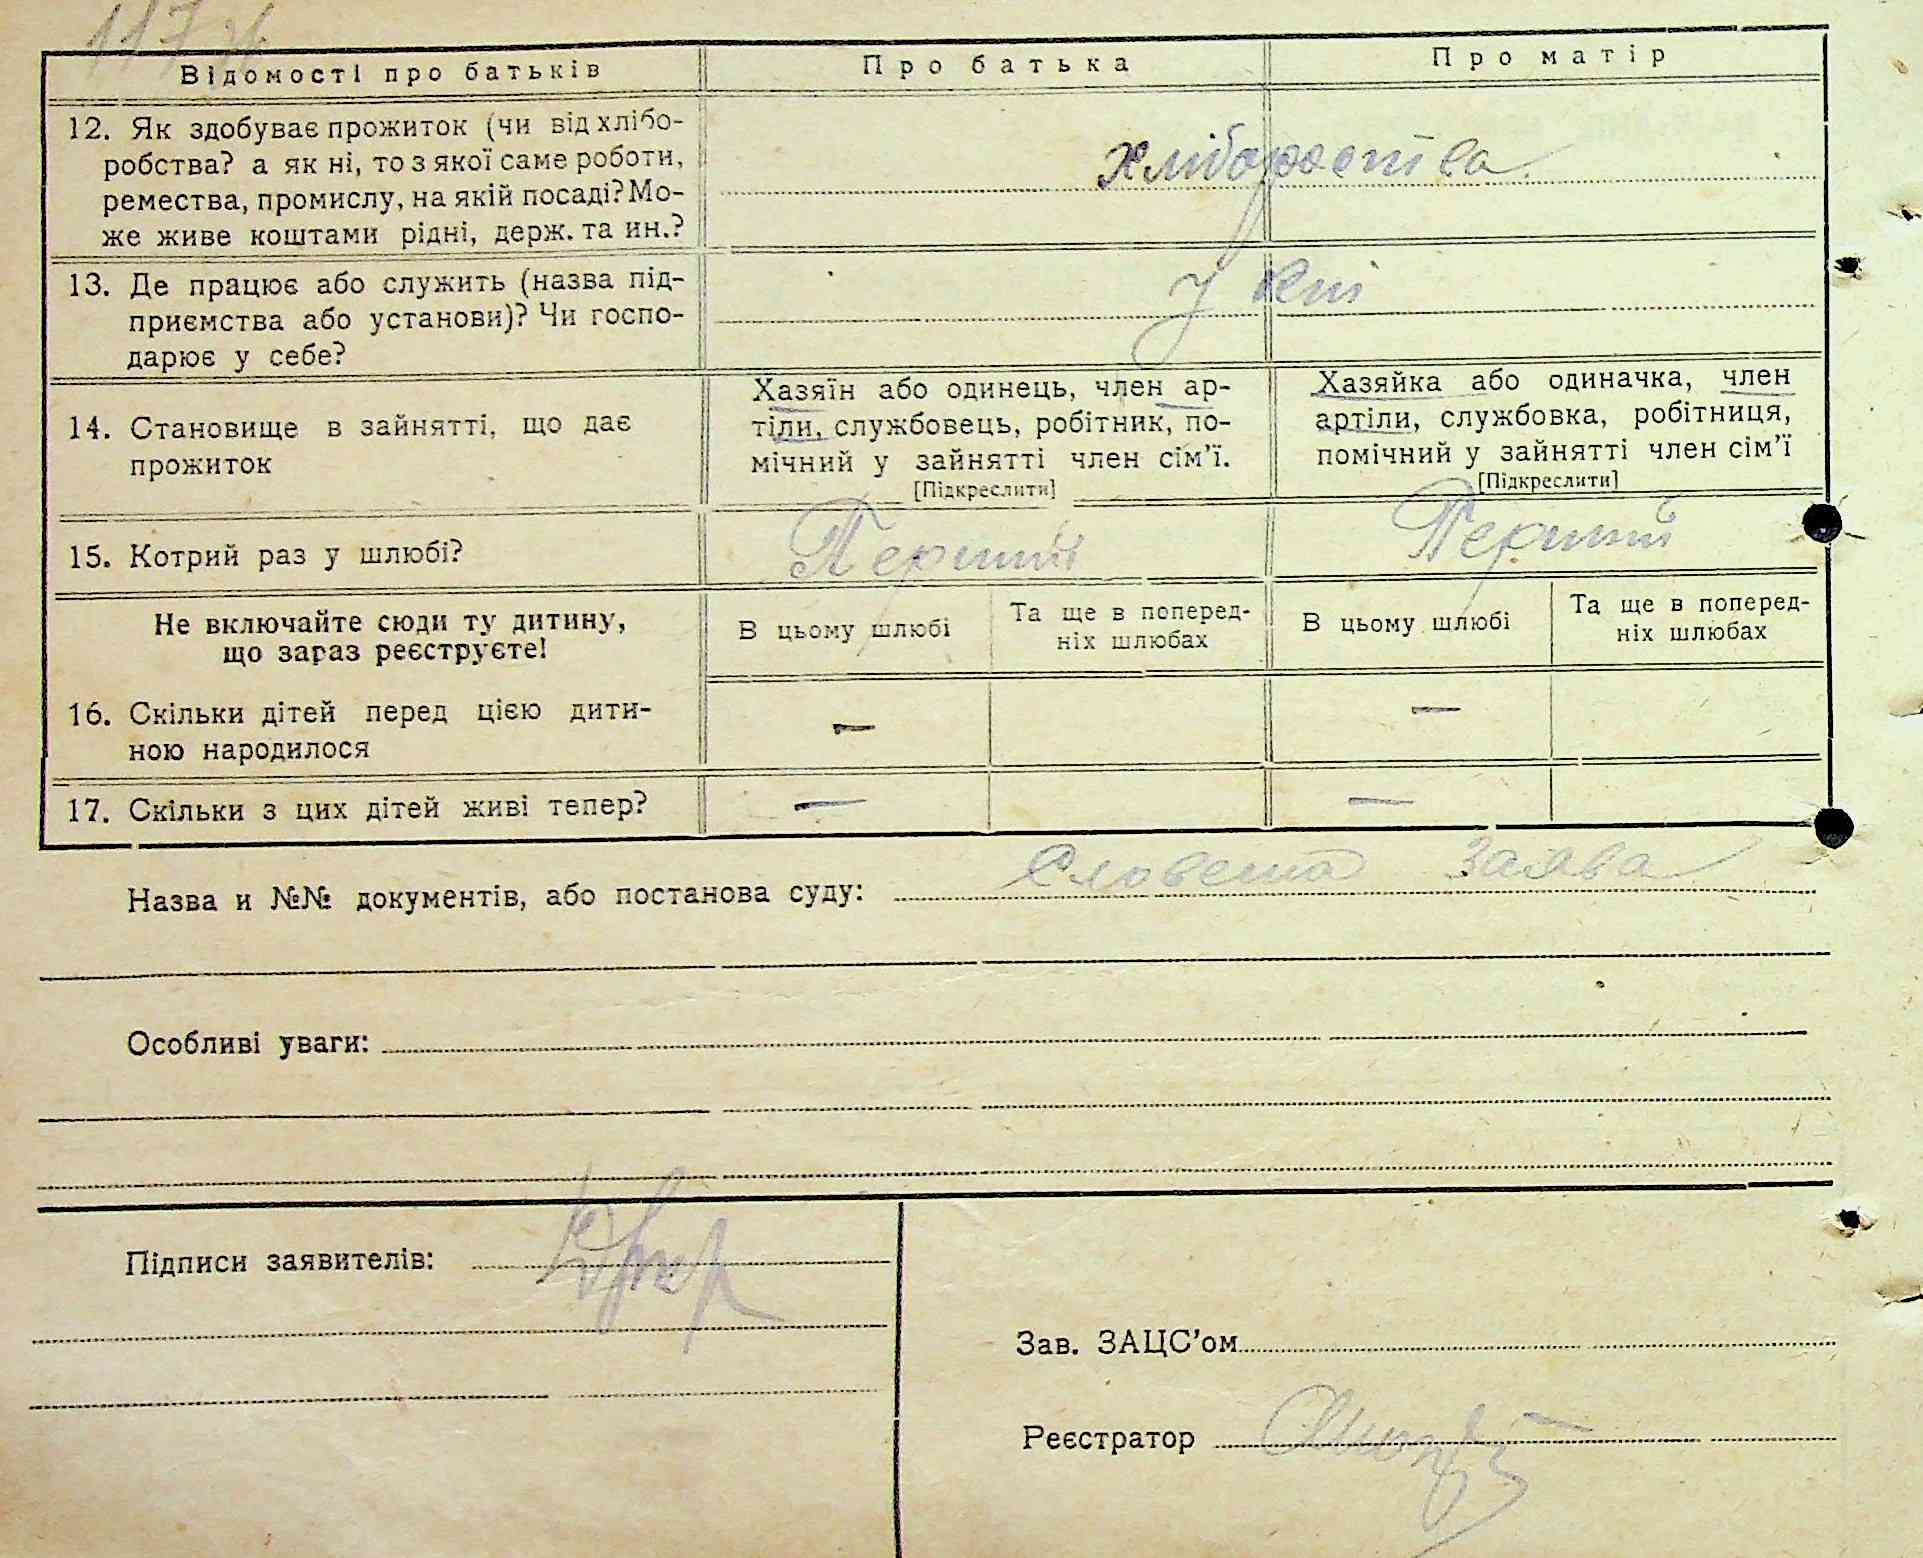 117
Відомості про батьків Про батька Про матір
12. Як здобуває прожиток (чи від хлібо-
робства? а як ні, то з якої саме роботи,
ремества, промислу, на якій посаді? Мо-
же живе коштами рідні, держ. та ин.?
хліборобства
13. Де працює або служить (назва під-
приємства або установи)? Чи госпо-
дарює у себе?
У
14. Становище в зайнятті, що дає
прожиток
Хазяїн або одинець, член ар-
тіли, службовець, робітник, по-
мічний у зайнятті член сім'ї.
[Підкреслити]
Хазяйка або одиначка, член
артіли, службовка, робітниця,
помічний у зайнятті член сім'ї
[Підкреслити]
15. Котрий раз у шлюбі? Перший Перший
Не включайте сюди ту дитину,
що зараз реєструєте!
В цьому шлюбі
Та ще в поперед-
ніх шлюбах
В цьому шлюбі
Та ще в поперед-
ніх шлюбах
16. Скільки дітей перед цією дити-
ною народилося
— —
17. Скільки з цих дітей живі тепер? — —
Назва и №№ документів, або постанова суду: Словесна Заява
Особливі уваги:
Підписи заявителів:
Зав. ЗАЦС'ом
Реєстратор